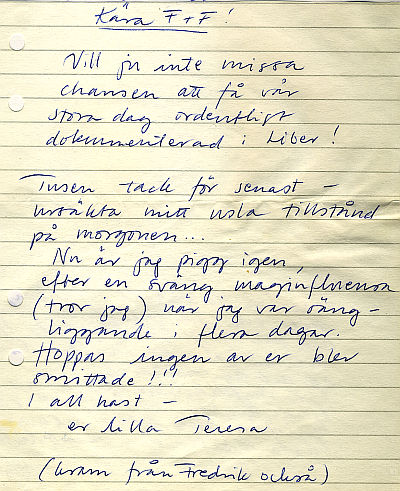 Kära F + F!
Vill ju inte missa
chansen att få vår
stora dag ordentligt
dokumenterad i Liber!
Tusen tack för senast –
ursäkta mitt usla tillstånd
på morgonen...
Nu är jag pigg igen,
efter en sväng maginfluensa
(tror jag) när jag var säng-
liggande i flera dagar.
Hoppas ingen av er blev
smittade!!!
I all hast –
er lilla Teresa
(kram från Fredrik också)